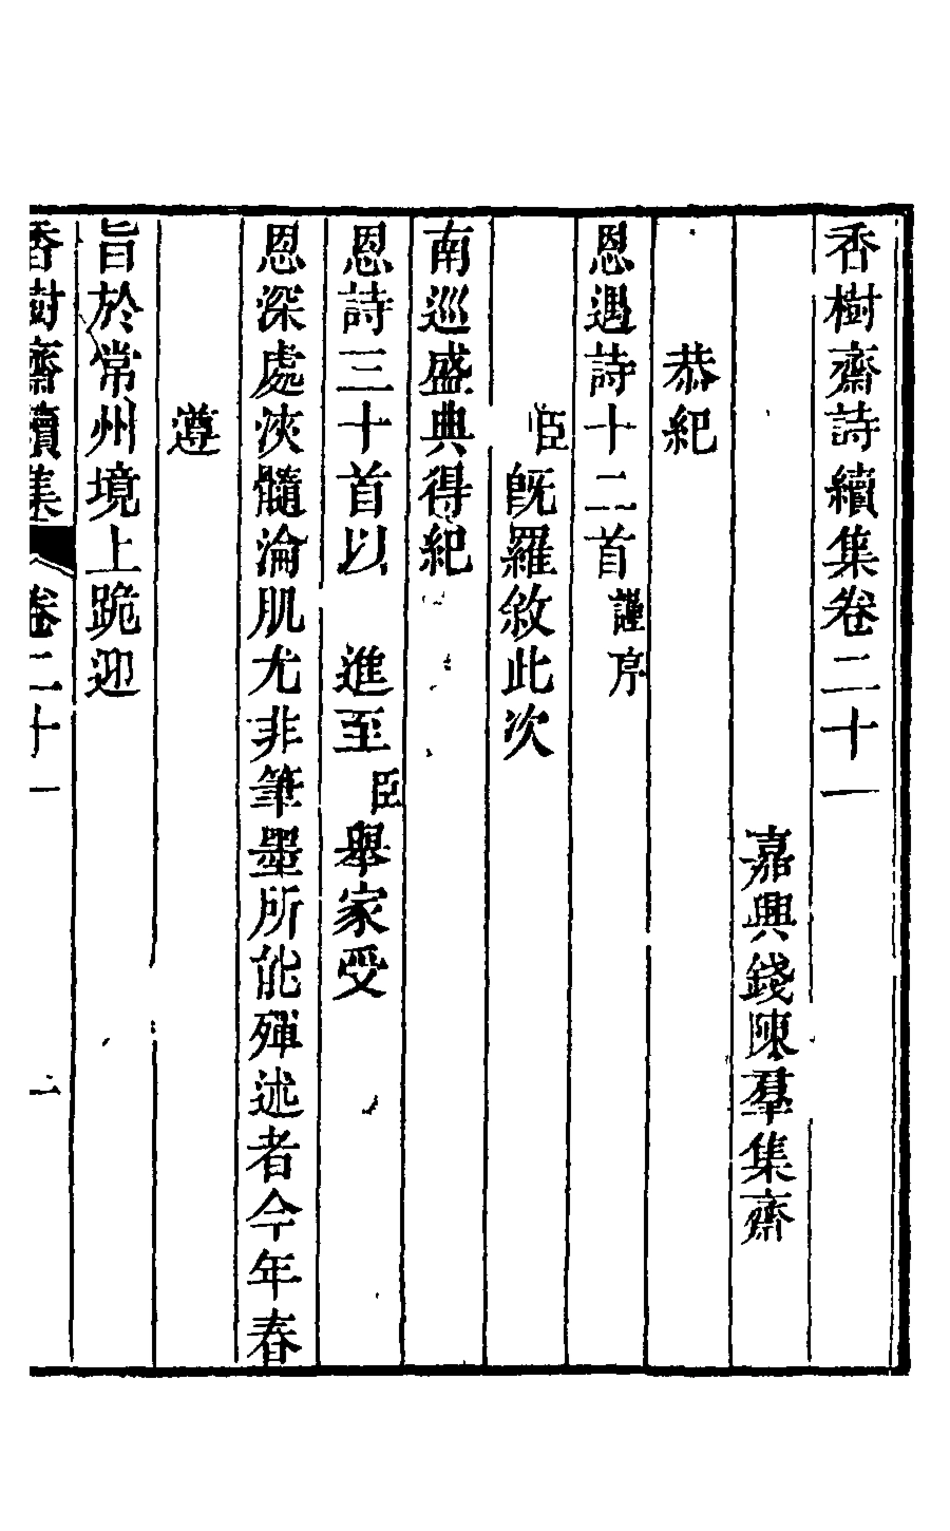 香樹齋詩續集卷二十一
嘉興錢陳羣集齋
恭紀
恩遇詩十二首謹序
臣旣羅敘此次
南巡盛典得紀
恩詩三十首以　進至臣舉家受
恩深處浹髓淪肌尤非筆墨所能殫述者今年春
遵
旨於常州境上跪迎
香樹齋續集　卷二十一　一